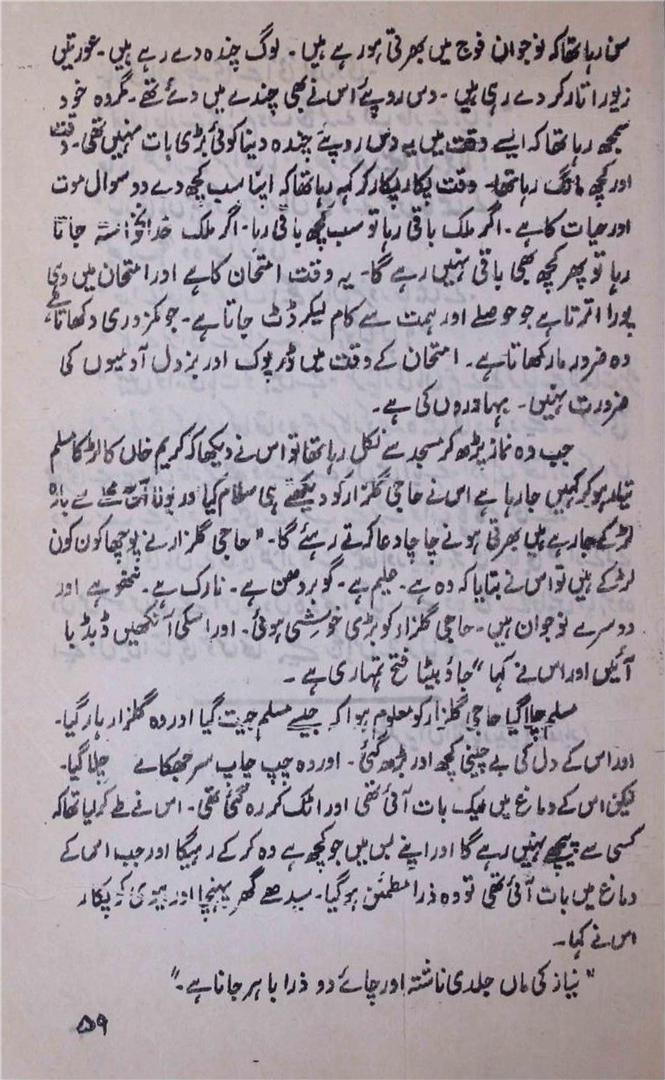 سن رہا تھا کہ نوجوان فوج میں بھرتی ہو رہے ہیں۔ لوگ چندہ دے رہے ہیں۔ عورتیں
زیور اتار کر دے رہی ہیں۔ دس روپے اس نے بھی چندے میں دئے تھے۔ مگر وہ خود
سمجھ رہا تھا کہ ایسے وقت میں یہ دس روپے چندہ دینا کوئی بڑی بات نہیں تھی۔ وقت
اور کچھ مانگ رہا تھا۔ وقت پکار پکار کر کہہ رہا تھا کہ اپنا سب کچھ دے دو سوال موت
اور حیات کا ہے۔ اگر ملک باقی رہا تو سب کچھ باقی رہا۔ اگر ملک خدانخواستہ جاتا
رہا تو پھر کچھ بھی باقی نہیں رہے گا۔ یہ وقت امتحان کا ہے اور امتحان میں وہی
پورا اترتا ہے جو حوصلے اور ہمت سے کام لیکر ڈٹ جاتا ہے۔ جو کمزوری دکھاتا ہے،
وہ ضرور مار کھاتا ہے۔ امتحان کے وقت میں ڈرپوک اور بزدل آدمیوں کی
ضرورت نہیں۔ بہادروں کی ہے۔
جب وہ نماز پڑھ کر مسجد سے نکل رہا تھا تو اس نے دیکھا کہ کریم خاں کا لڑکا مسلم
تیار ہو کر کہیں جا رہا ہے اس نے حاجی گلزار کو دیکھتے ہی سلام کیا اور بولا سے بارہ
لڑکے جا رہے ہیں بھرتی ہونے چاچا دعا کرتے رہئے گا۔" حاجی گلزار نے پوچھا کون کون
لڑکے ہیں تو اس نے بتایا کہ وہ ہے۔ علیم ہے۔ گوبردھن ہے۔ نارک ہے۔ نتھو ہے اور
دوسرے نوجوان ہیں۔ حاجی گلزار کو بڑی خوشی ہوئی۔ اور اسکی آنکھیں ڈبڈبا
آئیں اور اس نے کہا "جاؤ بیٹا فتح تمہاری ہے۔
مسلم چلا گیا حاجی گلزار کو معلوم ہوا کہ جیسے مسلم جیت گیا اور وہ گلزار ہار گیا۔
اور اس کے دل کی بے چینی کچھ اور بڑھ گئی۔ اور وہ چپ چاپ سر جھکائے چلا گیا۔
لیکن اس کے دماغ میں ایک بات آئی تھی اور اٹک کر رہ گئی تھی۔ اس نے طے کر لیا تھا کہ
کسی سے پیچھے نہیں رہے گا اور اپنے بس میں جو کچھ ہے وہ کر کے رہیگا اور جب اس کے
دماغ میں بات آئی تھی تو وہ ذرا مطمئن ہو گیا۔ سیدھے گھر پہنچا اور بیوی کو پکار
اس نے کہا۔
"نیاز کی ماں جلدی ناشتہ اور چائے دو ذرا باہر جانا ہے۔"
۵۹